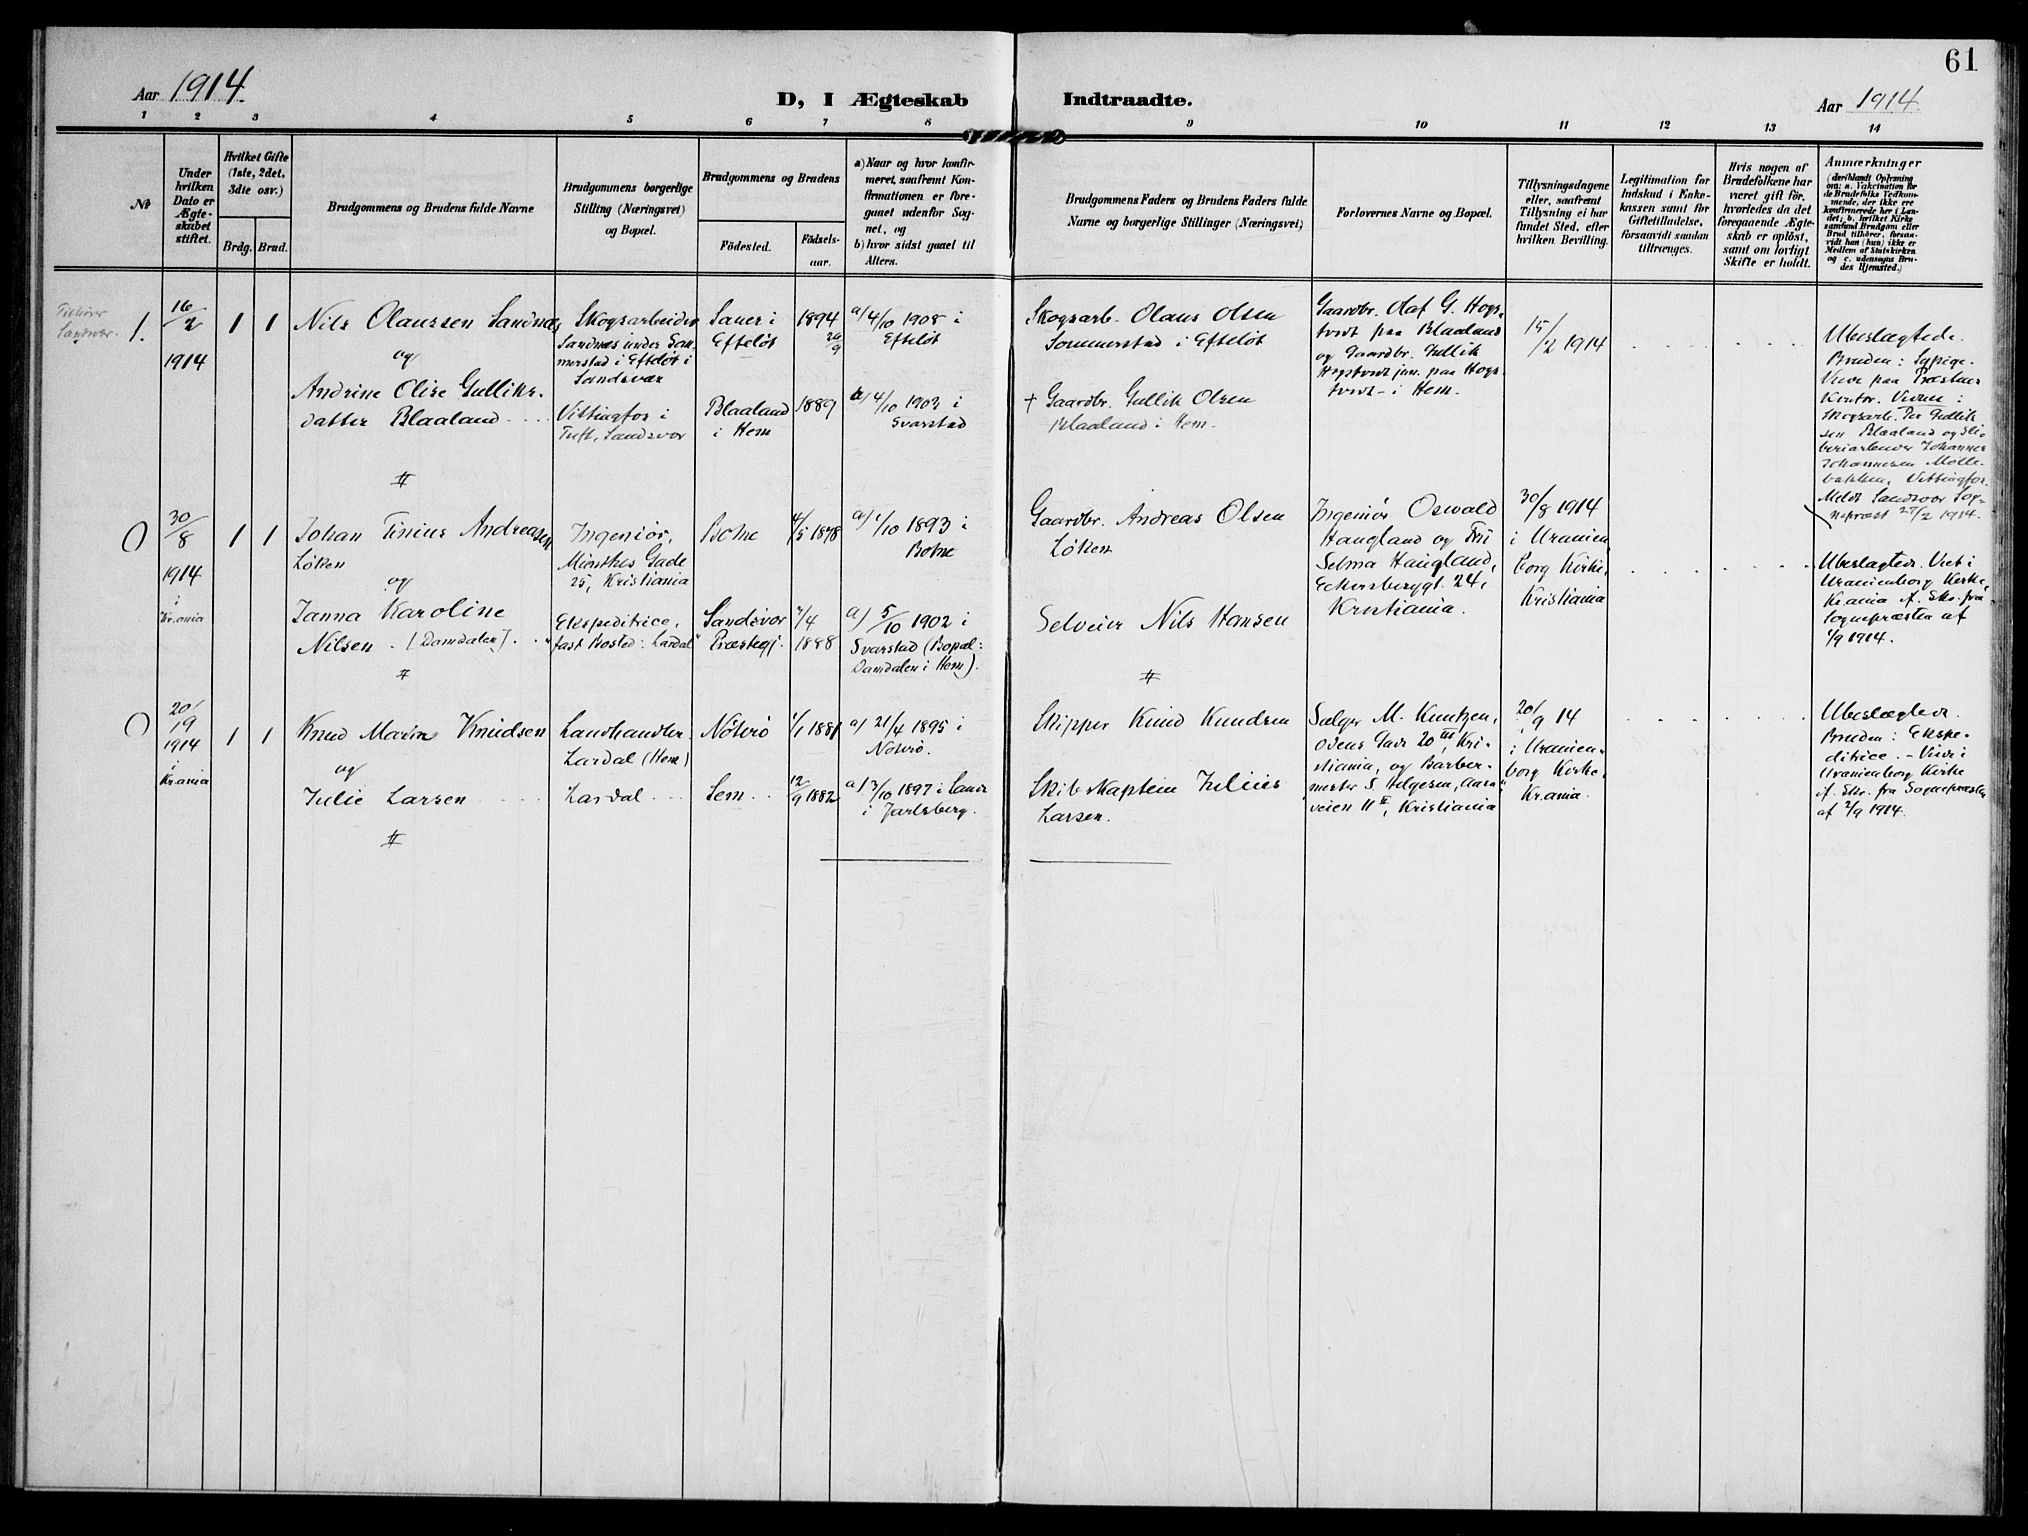 61
Aar 1914.
D, I Ægteskab Indtraadte.
Aar 1914
1 2 3 4 5 6 7 8 9 10 11 12 13 14
No
Under
hvilken
Dato er
Ægte-
skabet
stiftet.
Hvilket Gifte
(1ste, 2det,
3die osv.)
Brdg. Brud.
Brudgommens og Brudens fulde Navne
Brudgommens borgerlige
Stilling (Næringsvei)
og Bopæl.
Brudgommens og Brudens
Födested.
Födsels-
aar.
a) Naar og hvor konfir-
meret, saafremt Kon-
firmationen er fore-
gaaet udenfor Sog-
net, og
b) hvor sidst gaaet til
Alters.
Brudgommens Faders og Brudens Faders fulde
Navne og borgerlige Stillinger (Næringsvei)
Forlovernes Navne og Bopæl.
Tillysningsdagene
eller, saafremt
Tillysning ei har
fundet Sted, efter
hvilken Bevilling.
Legitimation for
Indskud i Enke-
kassen samt for
Giftetilladelse,
forsaavidt saadan
tiltrænges.
Hvis nogen af
Brudefolkene har
været gift för,
hvorledes da det
foregaaende Ægte-
skab er oplöst,
samt om lovligt
Skifte er holdt.
Anmærkninger
(deriblandt Oplysning
om: a. Vakcination for
de Brudefolks Vedkom-
mende, der ikke ere
konfirmerede her i Lan-
det; b. hvilket Kirke
samfund Brudgom eller
Brud tilhörer, forsaa-
vidt han (hun) ikke er
Medlem af Statskirken
og c. udensogns Bru-
des Hjemsted.)
Tilhører
Sandsvær.
1.
16/2
1914
1 1
Nils Olaussen Sandnæs
og
Andrine Olise Galliks-
datter Blaaland
Skogsarbeider
Sandnæs under Som-
merstad i Efteløt i
Sandsvær
Vittingfos i
Tuft, Sandsvær
Sauer i
Efteløt
Blaaland
i Hem
1894
20/9
1889
a/ 4/10 1908 i
Efteløt
4/10 1903 i
Svarstad
Skogsarb. Olaus Olsen
Sommerstad i Efteløt
+ Gaardbr. Gullik Olsen
Blaaland i Hem.
Gaardbr. Olaf G. Hogs-
tvedt paa Blaaland
og Gaardbr. Gullik
Hogstvedt jun. paa Hogs-
tvedt i Hem.
15/2 1914
Ubeslægtede.
Bruden: Sypige.
Viede paa Præstens
Kontor. Vidner:
Skogsarb. Per Gullik-
sen Blaaland og Sli-
beriarbeider Johannes
Johannesen Mølle-
bakken, Vittingfos.
Meldt Sandsvær Sog-
nepræst 27/2 1914.
30/8
1914
i
Kr.ania
1 1
Johan Tinius Andreassen
Løken
og
Janna Karoline
Nilsen (Damdalen)
Ingeniør,
Munthes Gade
25, Kristiania
Ekspeditrice,
fast Bosted: Lardal
Botne
Sandsvær
Præstegj.
4/5 1878
7/4
1888
a/ 1/10 1893 i
Botne
a) 5/10 1902 i
Svarstad (Bopæl:
Damdalen i Hem).
Gaardbr. Andreas Olsen
Løken
Selveier Nils Hansen
Ingeniør Oswald
Haugland og Fru
Selma Haugland,
Eckersberggt. 24,
Kristiania.
30/8 1914
i Uranien
borg Kirke,
Kristiania
Ubeslægtede. Viet i
Uranienborg Kirke,
Kr.ania if. Skr. fra
Sognepræsten af
1/9 1914.
20/
19
1914
i
Kr.ania
1 1
Knud Marin Knudsen
og
Julie Larsen
Landhandler
Lardal (Hem)
Lardal
Nøterø
Sem
1/1 1881
12/9 1882
a) 21/4 1895 i
Nøterø.
a) 3/10 1897 i Sande
i Jarlsberg.
Skipper Knud Knudsen
Skibskaptein Julius
Larsen.
Sælger M. Kuntzen,
Odens Gade 20 III, Kri-
stiania, og Barber-
mester S. Helgesen, Aase-
veien 11 II, Kristiania
20/9 14
i Uranien-
borg Kirke,
Kr.ania.
Ubeslægtede.
Bruden: Ekspe-
ditrice. - Viede i
Uranienborg Kirke
if. Skr. fra Sognepræsten
af 2/9 1914.